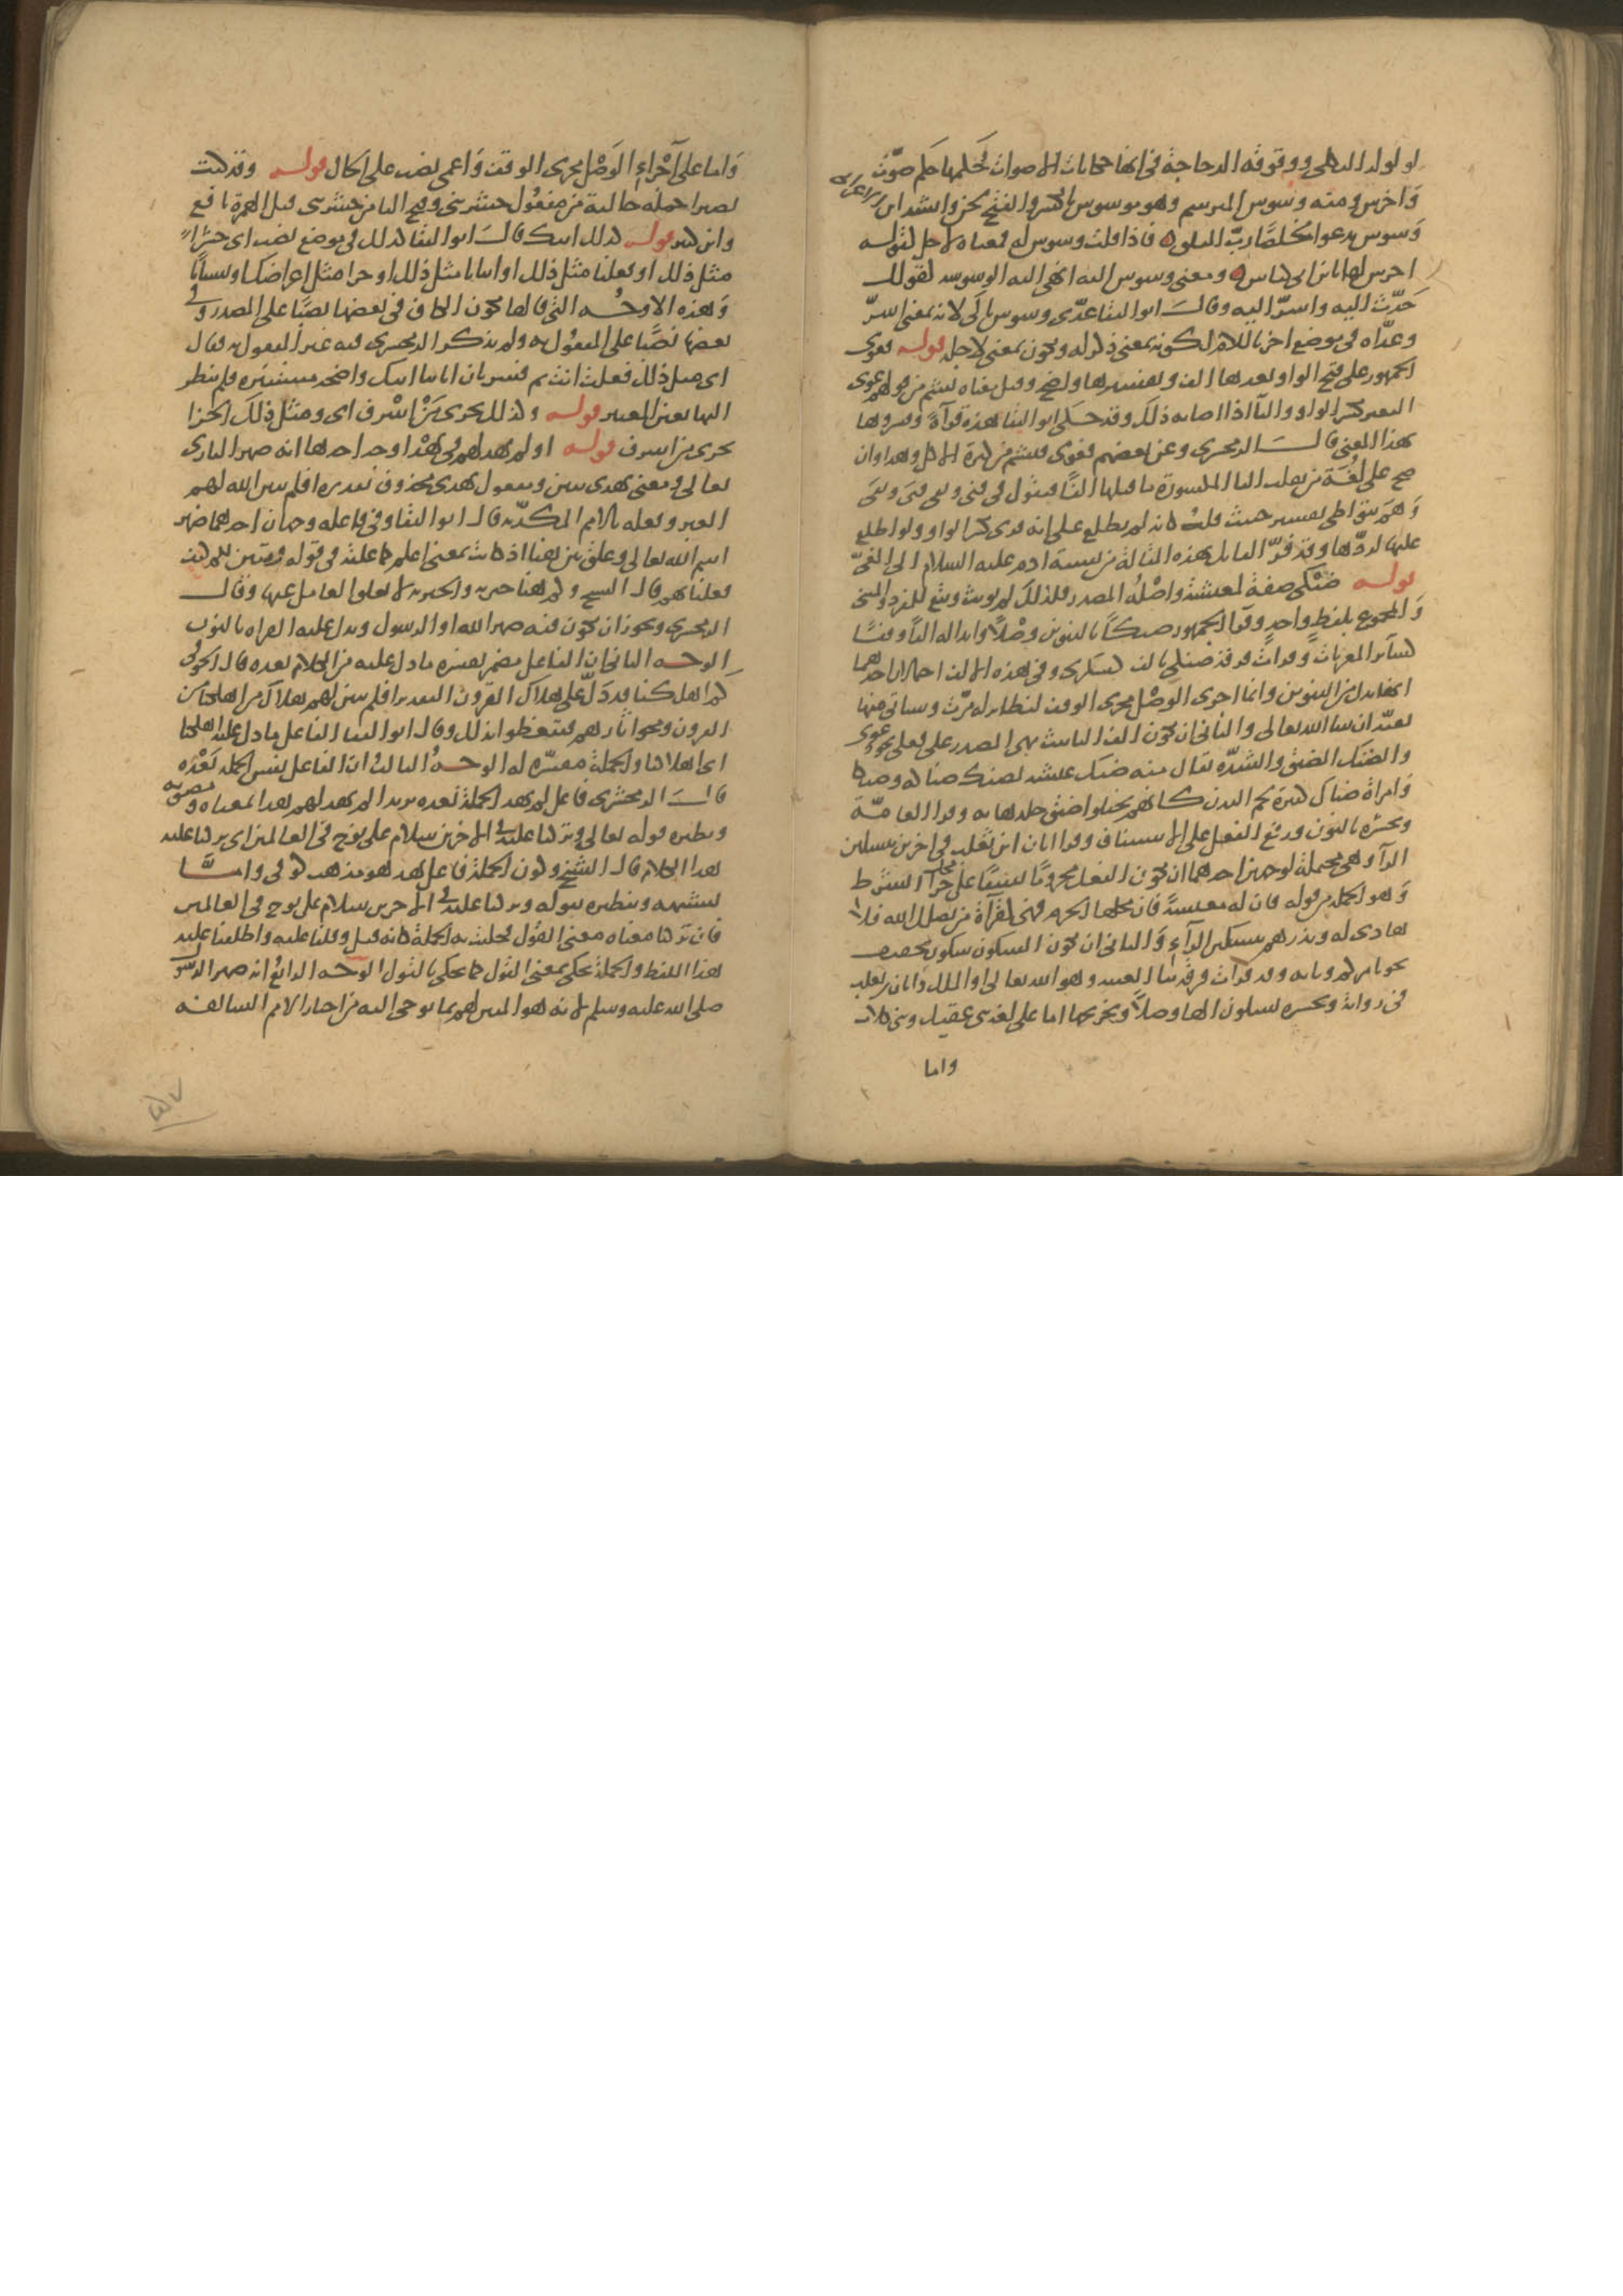 لولول الثكلى ووقوقة الدجاجة في انها حكايات الاصوات فحكمها حكم صوّت
وَاجرس ومنه وسوس المبرسم وهو موسوس بالكسر والفتح لحن وانشد ابن الاعرابي
وَسوس يدعو مخلصًا ربّ الفلق ه فاذا قلت وسوس له فمعناه لاجله كقوله
اجرس لها يا بن ابي كباس ه ومعنى وسوس اليه انهى اليه الوسوسه كقولك
حَدّث اليه واسرّ اليه وقالَ ابو البقا عدّى وسوس بالى لانه بمعنى اسرّ
وعدّاه في موضع اخر باللام لكونه بمعنى ذكر له ويكون بمعنى لاجله قوله فغوى
الجمهور على فتح الواو بعدها الف وتفسيرها واضح وقيل معناه بشم من قولهم غوى
البعير بكسر الواو واليآ اذا اصابه ذلكَ وقد حكى ابو البقا هذه قرآةً وفسروها
بهذا المعنى قالَ الزمخشرى وعن بعضهم فغوى فبشم من كثرة الاكل وهذا وان
صح على لُغَة من يقلب اليا المكسورة ما قبلها الفًا فيقول في فنى وبقى فنَى وبقَى
وَهم بنو طي تفسير خبيث قلت كانه لم يطلع على انه قرى بكسر الواو ولو اطلع
عليها لردّها وقد فرّ القايل بهذه المقالة من نسبة ادم عليه السلام الى الغيّ
قوله ضنكى صفة لمعيشة واصْلُه المصدر فلذلكَ لم يونث ويقع للمفرد والمثنى
وَالمجموع بلفظٍ واحدٍ وقرأ الجمهور ضنكًا بالتنوين وصْلًا وابداله الفًا وقفًا
كسآئر المعربات وقرات فرقة ضنكى بالف كسكرى وفى هذه الالف احتمالان احدهما
انها بدل من التنوين وانما اجرى الوصْل مجرى الوقف كنظائر له مرّت وسياتى منها
بقيّة ان شا الله تعالى والثاني ان تكون الف التانيث بنى المصدر على فعلى نحو دعوى
والضنك الضيق والشدّه يقال منه ضنك عيشه يضنك ضناكه وضنكا
وَامراة ضناك كثيرة لحم البدن كانهم تخيلوا ضيق جلدها به وقرا العامّة
ونحشره بالنون ورفع الفعل على الاستيناف وقرا ابان ابن تغلب في اخرين بتسكين
الرآ وهى محتملة لوجهين احدهما ان يكون الفعل مجزومًا نسقًا على محل جزآ الشرط
وَهو الجمله من قوله فان له معيشةً فان محلها الجزم فهى كقرآة من يضلل الله فلا
هادى له ويذرهم بتسكين الرآء وَالثاني ان تكون السكون سكون تخفيف
نحو يامركم وبابه وقد قرات فرقة بيا الغيبة وهو الله تعالى او الملك وابان بن تغلب
في رواية ونحشره بسكون الها وصلًا وتخريجها اما على لغة بنى عقيل وبنى كلاب
واما
وَاما على آجْراءِ الوَصْل مجرى الوقف وَاعمى نصب على الحال قوله وقد كنت
بصيرا جمله حالية من مفعول حشرتنى وفتح اليا من حشرتنى قبل الهمزة نافع
وابن كثير قوله كذلك اتتك قالَ ابو البقا كذلك في موضع نصب اى حشرًا
مثل ذلك او فعلنا مثل ذلك او اتيانا مثل ذلك او جزا مثل اعراضك او نسيانًا
وَهذه الاوجُه التي قالها تكون الكاف في بعضها نصبًا على المصدر وفي
بعضها نصبًا على المفعُول به ولم يذكر الزمخشرى فيه غير المفعول به فقال
اى مثل ذلك فعلت انت ثم فسر بان اياتنا اتتك واضحة مستنيرة فلم تنظر
اليها بعين المعتبر قوله وكذلك نجزى مَنْ اسْرف اى ومثل ذلكَ الجزا
نجزى من اسرف قوله اولم يهد لهم في يَهْد اوجه احدها انه ضمير البارى
تعالى ومعنى يهدى يبين ومفعول يهدى محذوف تقديره افلم يبين الله لهم
العبر وفعله بالامم المكذّبة قال ابو البقا وفى فاعله وجهان احدهما ضمير
اسم الله تعالى وعلق يبن هنا اذ كانت بمعنى اعلم كما علقت في قوله وتبين لكم كيف
فعلنا بهم قال الشيخ وكم هنا خبرية والخبرية لا تعلق العامل عنها وقال
الزمخشرى ويجوز ان تكون فيه ضمير الله او الرسول ويدل عليه القراه بالنون
الوجه الثاني ان الفاعل مضمر يفسره ما دل عليه من الكلام بعده قال الحوفى
كم اهلكنا قد دَلّ على هلاك القرون التقدير افلم يبين لهم هلاك من اهلكنا من
القرون ومحو اثارهم فيتعظوا بذلك وقال ابو البقا الفاعل ما دل عليه اهلكنا
اى اهلاكنا والجملة مفسّره له الوجهُ الثالث ان الفاعل نفس الجمله بَعْدَه
قالَ الزمخشرى فاعل لم يهد الجملة بعده يريد الم يهد لهم هذا بمعناه ومضمونه
ونظيره قوله تعالى وتركنا عليه في الاخرين سلام على نوح في العالمين اى تركنا عليه
هذا الكلام قال الشيخ وكون الجملة فاعل يهد هو مذهب كوفى وامّا
تشبيهه وتنظيره بقوله وتركنا عليه في الاخرين سلام على نوح في العالمين
فان تركنا معناه معنى القول فحكيت به الجملة كانه قيل وقلنا عليه واطلقنا عليه
هذا اللفظ والجملة تحكى بمعنى القول كما تحكى بالقول الوجه الرابع انه ضمير الرّسول
صلى الله عليه وسلم لانه هو المبين لهم بما يوحى اليه من اخبار الامم السالفه